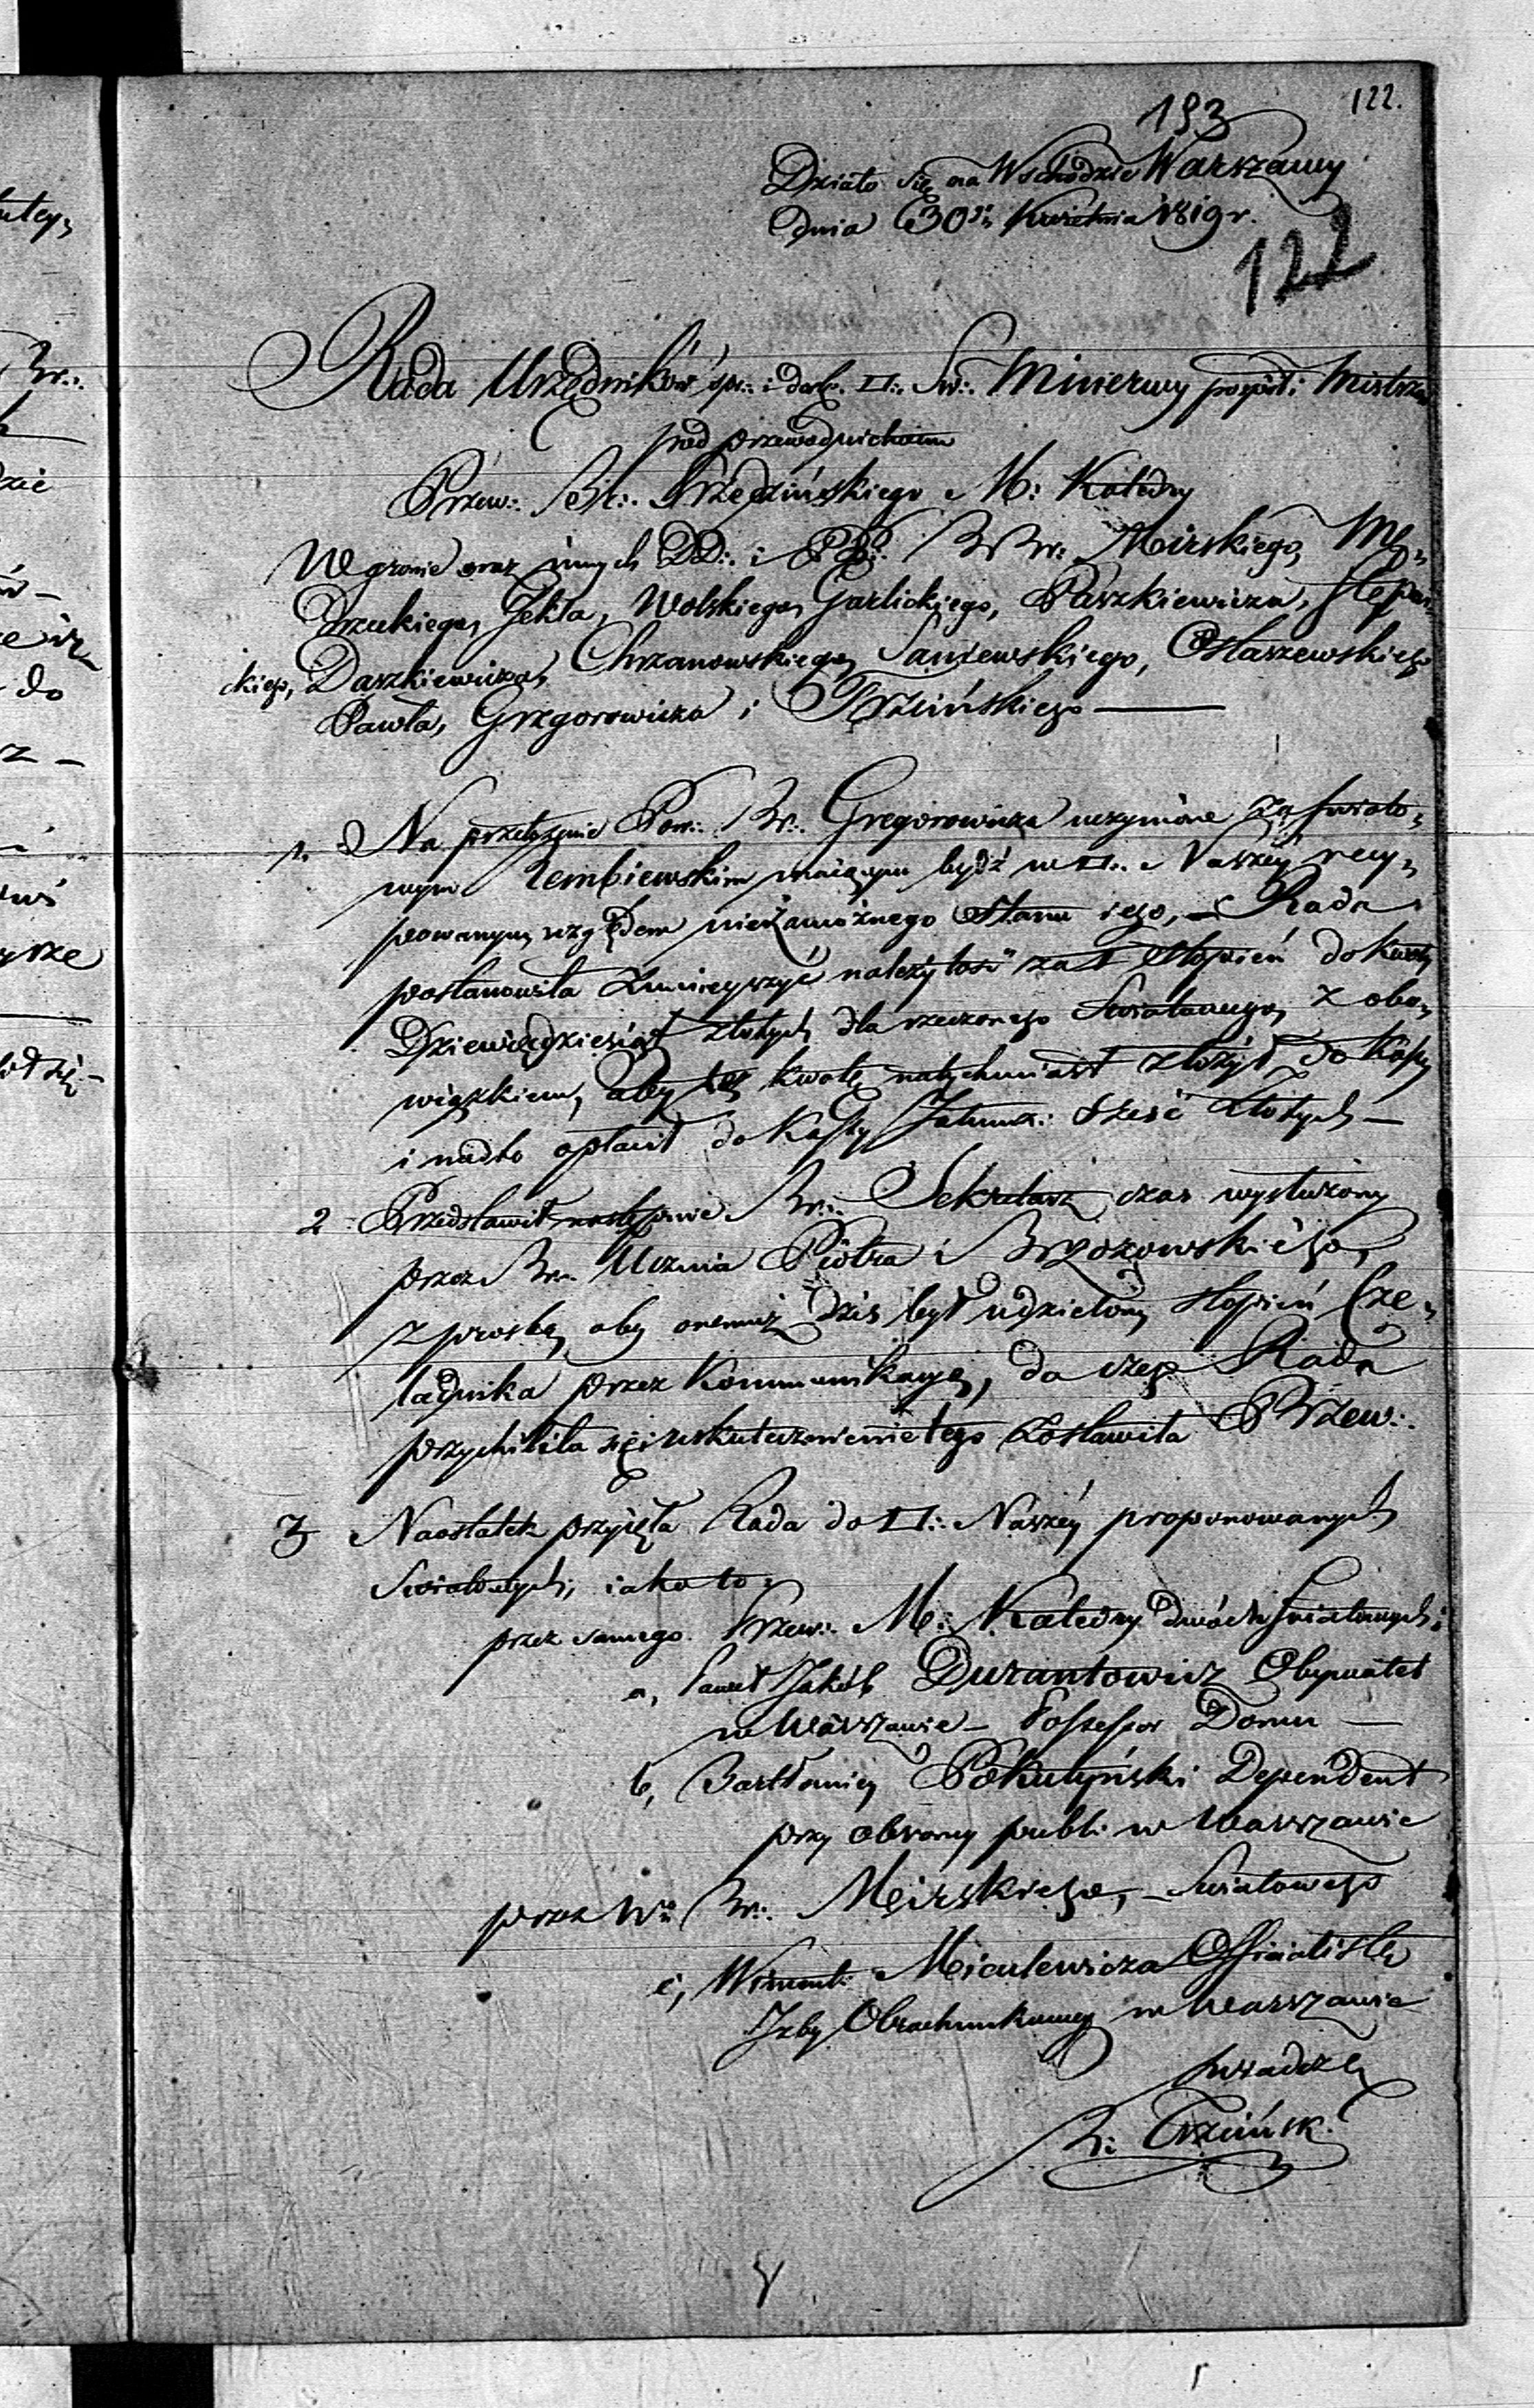 122.
193
Działo się na Wschodzie Warszawy
dnia 30go Kwietnia 1819 r.
122
Rada Urzędników spr: i dosk: □: Św: Minerwy pospołu: Mistrzów
pod przewodnictwem
Przew: Br: Trzedzińskiego M: Katedry
W gronie oraz innych DD: i PP: BBr: Meirskiego, Mę,,
drzeckiego, Jekla, Wolskiego, Garlickiego, Paszkiewicza, Stępni,,
ckiego, Daszkiewicza, Chrzanowskiego, Saniewskiego, Ostaszewskiego
Pawła, Grzgorowicza i Trzcińskiego —
1. Na przełożenie Pow: Br: Gregorowicza uczynione za świato,,
wym Rembiewskim maiącym bydź w □: Naszey recy,,
powanym, względem niezamożnego stanu iego, — Rada
postanowiła zmnieyszyć należytość za I stopień do kwoty
Dziewięćdziesiąt złotych dla rzeczonego Światowego, z obo,,
wiązkiem, aby tę kwotę natychmiast złożył do Kassy
i nadto opłacił do Kassy Jałmuż: sześć złotych —
2 Przedstawił następnie Br: Sekretarz czas wysłużony
przez Br: Ucznia Piotra Brzozowskiego,
z prośbą, aby onemuż dziś był udzielony stopień Cze,,
ladnika przez Kommunikacyą, do czego Rada
przychiliła się i uskutecznienie tego zostawiła Przew:
3 Naostatek przyięła Rada do □: Naszéy proponowanych
Światowych, iako to:
przez samego Przew: M: Katedry dwóch Światowych:
a, Paweł Jakób Durantowicz Obywatel
w Warszawie — Possessor Domu —
b, Bartłomiey Pokutyński Dependent
przy obrony publ: w Warszawie
przez Wo Br: Meirskiego, — Światowego
c, Wincent: Miculewicza Officialistę
Izby Obrachunkowey w Warszawie
świadczę
Br: Trzcińsk: